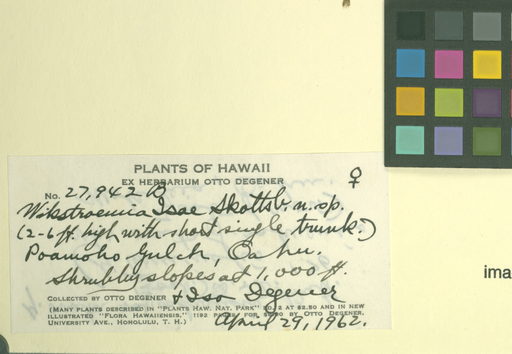 PLANTS OF HAWAII
EX HERBARIUM OTTO DEGENER
♀
No. 27,942 B
Wikstroemia Isae Skottsb. n. sp.
(2-6 ft. high with short single trunk.)
Poamoho Gulch, Oahu.
Shrubby slopes at 1,000 ft.
COLLECTED BY OTTO DEGENER & Isa Degener
(MANY PLANTS DESCRIBED IN "PLANTS HAW. NAT. PARK" AT $2.50 AND IN NEW
ILLUSTRATED "FLORA HAWAIIENSIS," 1192 PAGES FOR BY OTTO DEGENER,
UNIVERSITY AVE., HONOLULU, T. H.) April 29, 1962.
ima